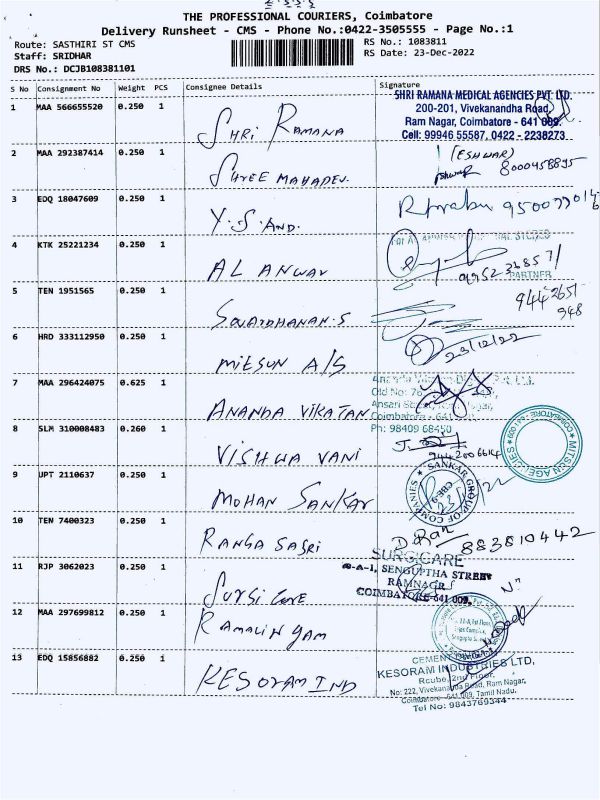 THE PROFESSIONAL COURIERS, Coimbatore
Delivery Runsheet - CMS - Phone No.:0422-3505555 - Page No.:1
Route: SASTHIRI ST CMS
RS No.: 1083811
Staff: SRIDHAR
RS Date: 23-Dec-2022
DRS No.: DCJB108381101
S No Consignment No Weight PCS Consignee Details Signature
1 MAA 566655520 0.250 1 SHRI RAMANA
SHRI RAMANA MEDICAL AGENCIES PVT. LTD.
200-201, Vivekanandha Road,
Ram Nagar, Coimbatore - 641 009.
Cell: 99946 55587, 0422 - 2238273
2 MAA 292387414 0.250 1 SHREE MAHADEV.
(ESHWAR)
8000458895
3 EDQ 18047609 0.250 1 Y.S. AND.
4 KTK 25221234 0.250 1 AL ANWAR
PARTNER
5 TEN 1951565 0.250 1
9442651-
948
6 HRD 333112950 0.250 1 MITSUN A/S
23/12/22
7 MAA 296424075 0.625 1 ANANDA VIKATAN
Ph: 98409 68450
8 SLM 310008483 0.260 1 VISHWA VANI
9442006614
MITSUN AGENCIES
COIMBATORE-641 009
9 UPT 2110637 0.250 1 MOHAN SANKAR
SANKAR GROUP OF COMPANIES
10 TEN 7400323 0.250 1 RANGA SASRI
883810442
11 RJP 3062023 0.250 1 SURGI CARE
SURGICARE
SENGUPTHA STREET
RAMNAGR
COIMBATORE-641 009.
12 MAA 297699812 0.250 1 RAMALINGAM
13 EDQ 15856882 0.250 1 KESORAM IND
CEMENT
KESORAM INDUSTRIES LTD,
Rcube, 2nd Floor,
No: 222, Vivekananda Road, Ram Nagar,
Coimbatore - 641 009, Tamil Nadu.
Tel No: 9843769344